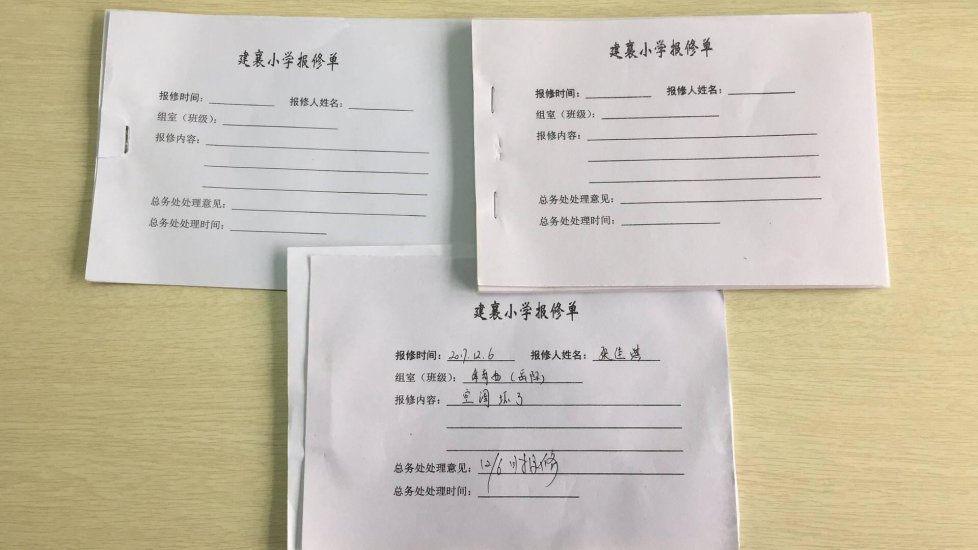 建襄小学报修单
报修时间： 报修人姓名：
组室（班级）：
报修内容：
总务处处理意见：
总务处处理时间：
建襄小学报修单
报修时间： 报修人姓名：
组室（班级）：
报修内容：
总务处处理意见：
总务处处理时间：
建襄小学报修单
报修时间：2017.12.6 报修人姓名：
组室（班级）：
报修内容：空调坏了
总务处处理意见：12/6 报修
总务处处理时间：